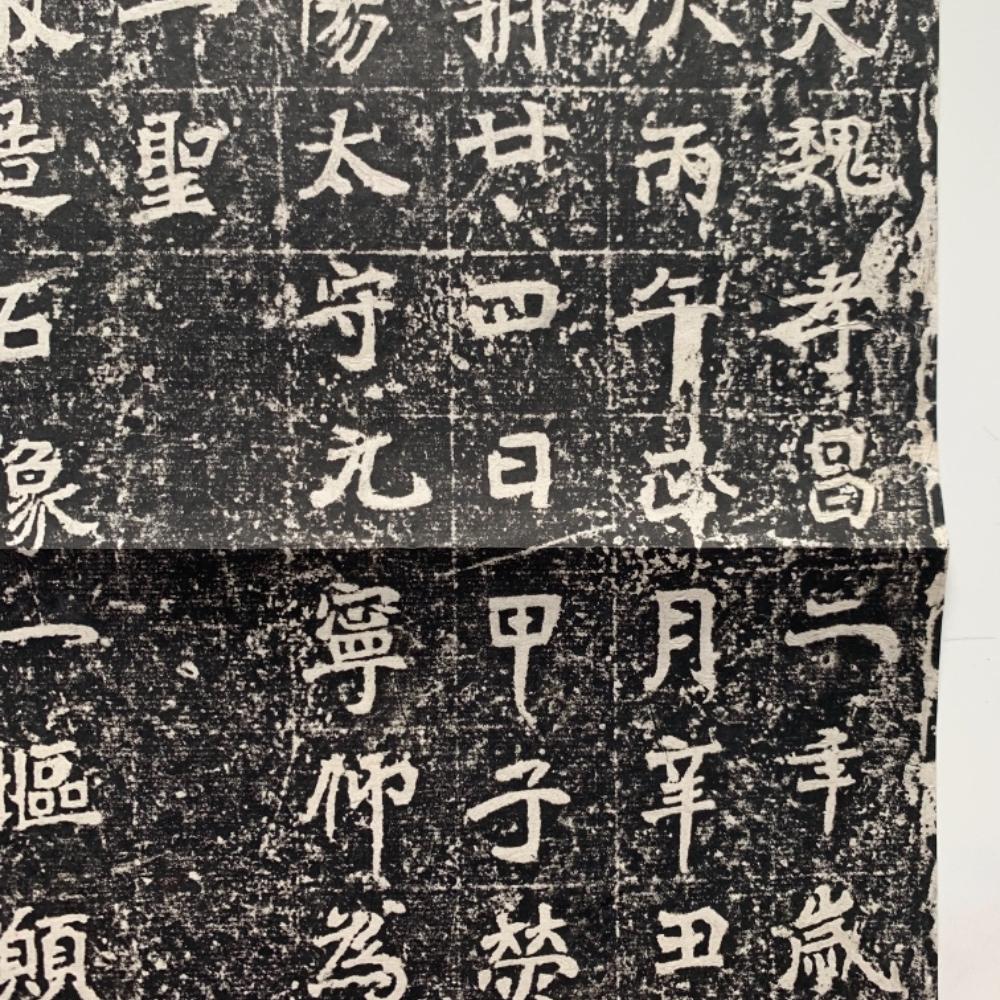 大魏孝昌二年歲
次丙午正月辛丑
朔廿四日甲子滎
陽太守元寧仰為
二聖
敬造石像一軀願